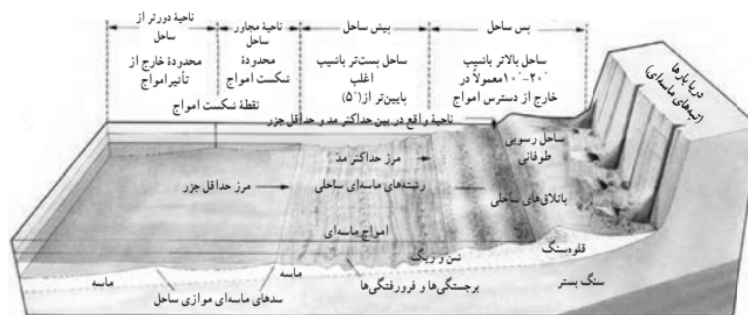 ناحیهٔ دورتر از
ساحل
ناحیهٔ مجاور
ساحل
پیش ساحل
پس ساحل
محدودهٔ خارج از
تأثیر امواج
محدودهٔ
شکست امواج
ساحل پست‌تر باشیب
اغلب
پایین‌تر از (۵°)
ساحل بالاتر باشیب
۲۰°-۱۰° معمولاً در
خارج از دسترس امواج
نقطهٔ شکست امواج
ناحیهٔ واقع در بین حداکثر مد و حداقل جزر
دریا بارها
(تپه‌های ماسه‌ای)
ساحل رسوبی
طوفانی
مرز حداکثر مد
مرز حداقل جزر
رشته‌های ماسه‌ای ساحلی
باتلاق‌های ساحلی
امواج ماسه‌ای
قلوه‌سنگ
شن و ریگ
ماسه
ماسه
برجستگی‌ها و فرورفتگی‌ها
سنگ بستر
سدهای ماسه‌ای موازی ساحل